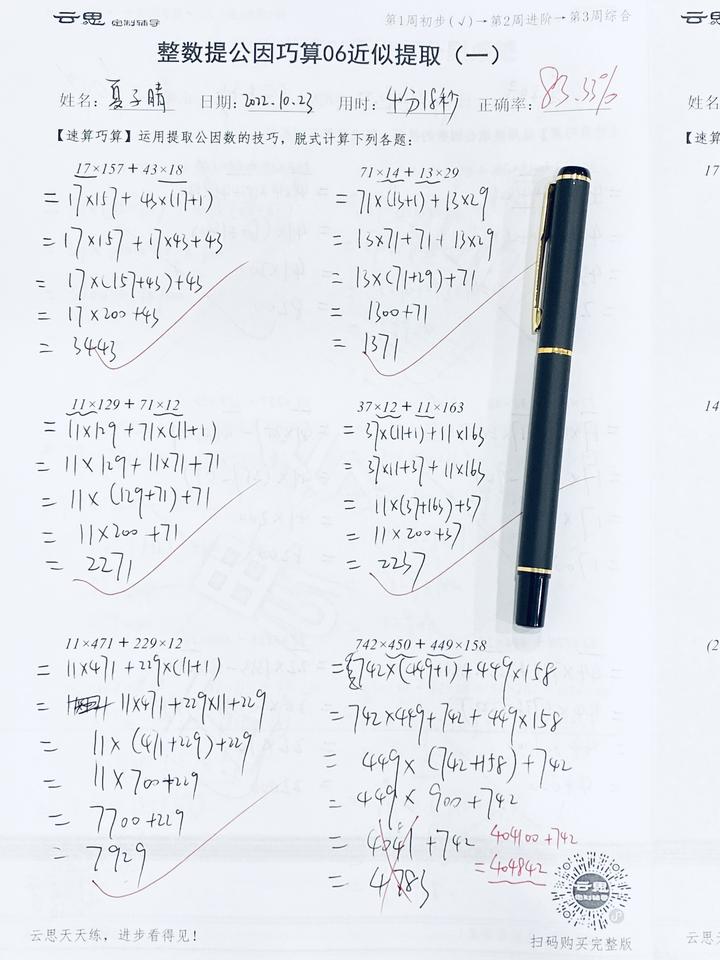 云思 定制辅导
第1周初步(✓)→第2周进阶→第3周综合
整数提公因巧算06近似提取（一）
姓名: 夏子晴 日期: 2022.10.23 用时: 4分18秒 正确率: 83.33%
【速算巧算】运用提取公因数的技巧，脱式计算下列各题:
17×157 + 43×18
= 17×157 + 43×(17+1)
= 17×157 + 17×43 + 43
= 17×(157+43)+43
= 17×200+43
= 3443
71×14 + 13×29
= 71×(13+1)+13×29
= 13×71+71+13×29
= 13×(71+29)+71
= 1300+71
= 1371
11×129 + 71×12
= 11×129+71×(11+1)
= 11×129+11×71+71
= 11×(129+71)+71
= 11×200+71
= 2271
37×12 + 11×163
= 37×(11+1)+11×163
= 37×11+37+11×163
= 11×(37+163)+37
= 11×200+37
= 2237
11×471 + 229×12
= 11×471+229×(11+1)
= 11×471+229×11+229
= 11×(471+229)+229
= 11×700+229
= 7700+229
= 7929
742×450 + 449×158
= 742×(449+1)+449×158
= 742×449+742+449×158
= 449×(742+158)+742
= 449×900+742
= 4041+742 404100+742
= 4783 =404842
云思
定制辅导
云思天天练，进步看得见！
扫码购买完整版
云思
姓名
【速算
17
14
11
(2
云思天